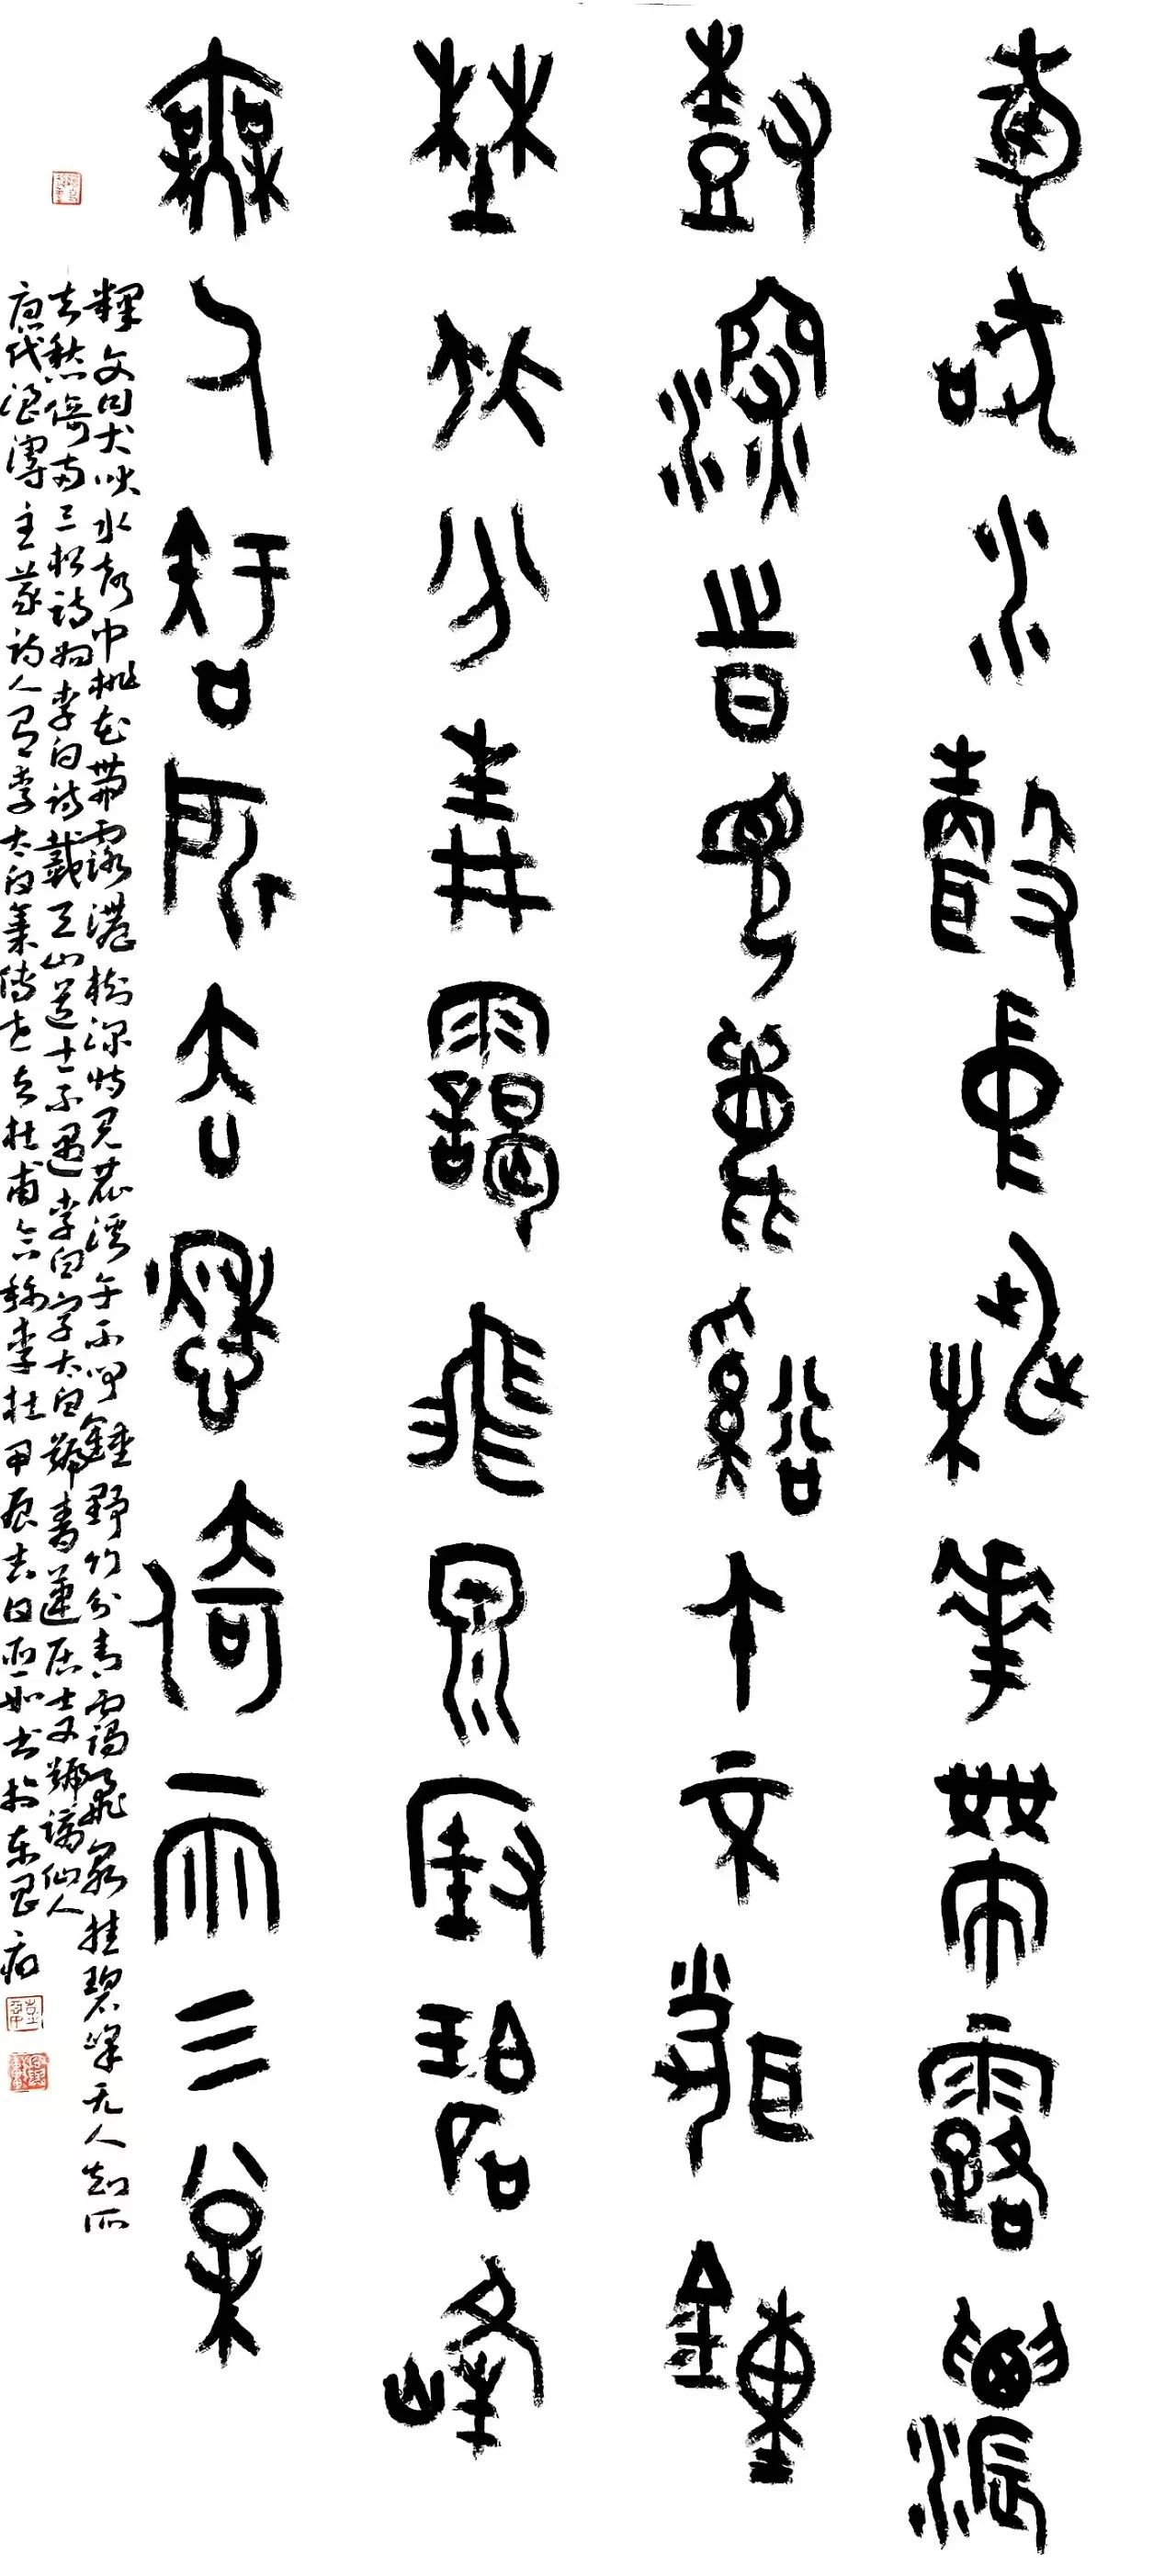 犬吠水聲中桃花帶露濃
尌深時見鹿谿午不聞鐘
埜竹分青靄飛泉挂碧峰
無人知所去愁倚兩三松
釋文曰犬吠水声中桃花帶露濃樹深時見鹿溪午不聞鐘野竹分青靄飛泉挂碧峰无人知所
去愁倚两三松詩爲李白訪戴天山道士不遇李白字太白號青蓮居士又號謫仙人
唐代浪漫主義詩人有李太白集傳世与杜甫合称李杜甲辰吉日书於东昌府